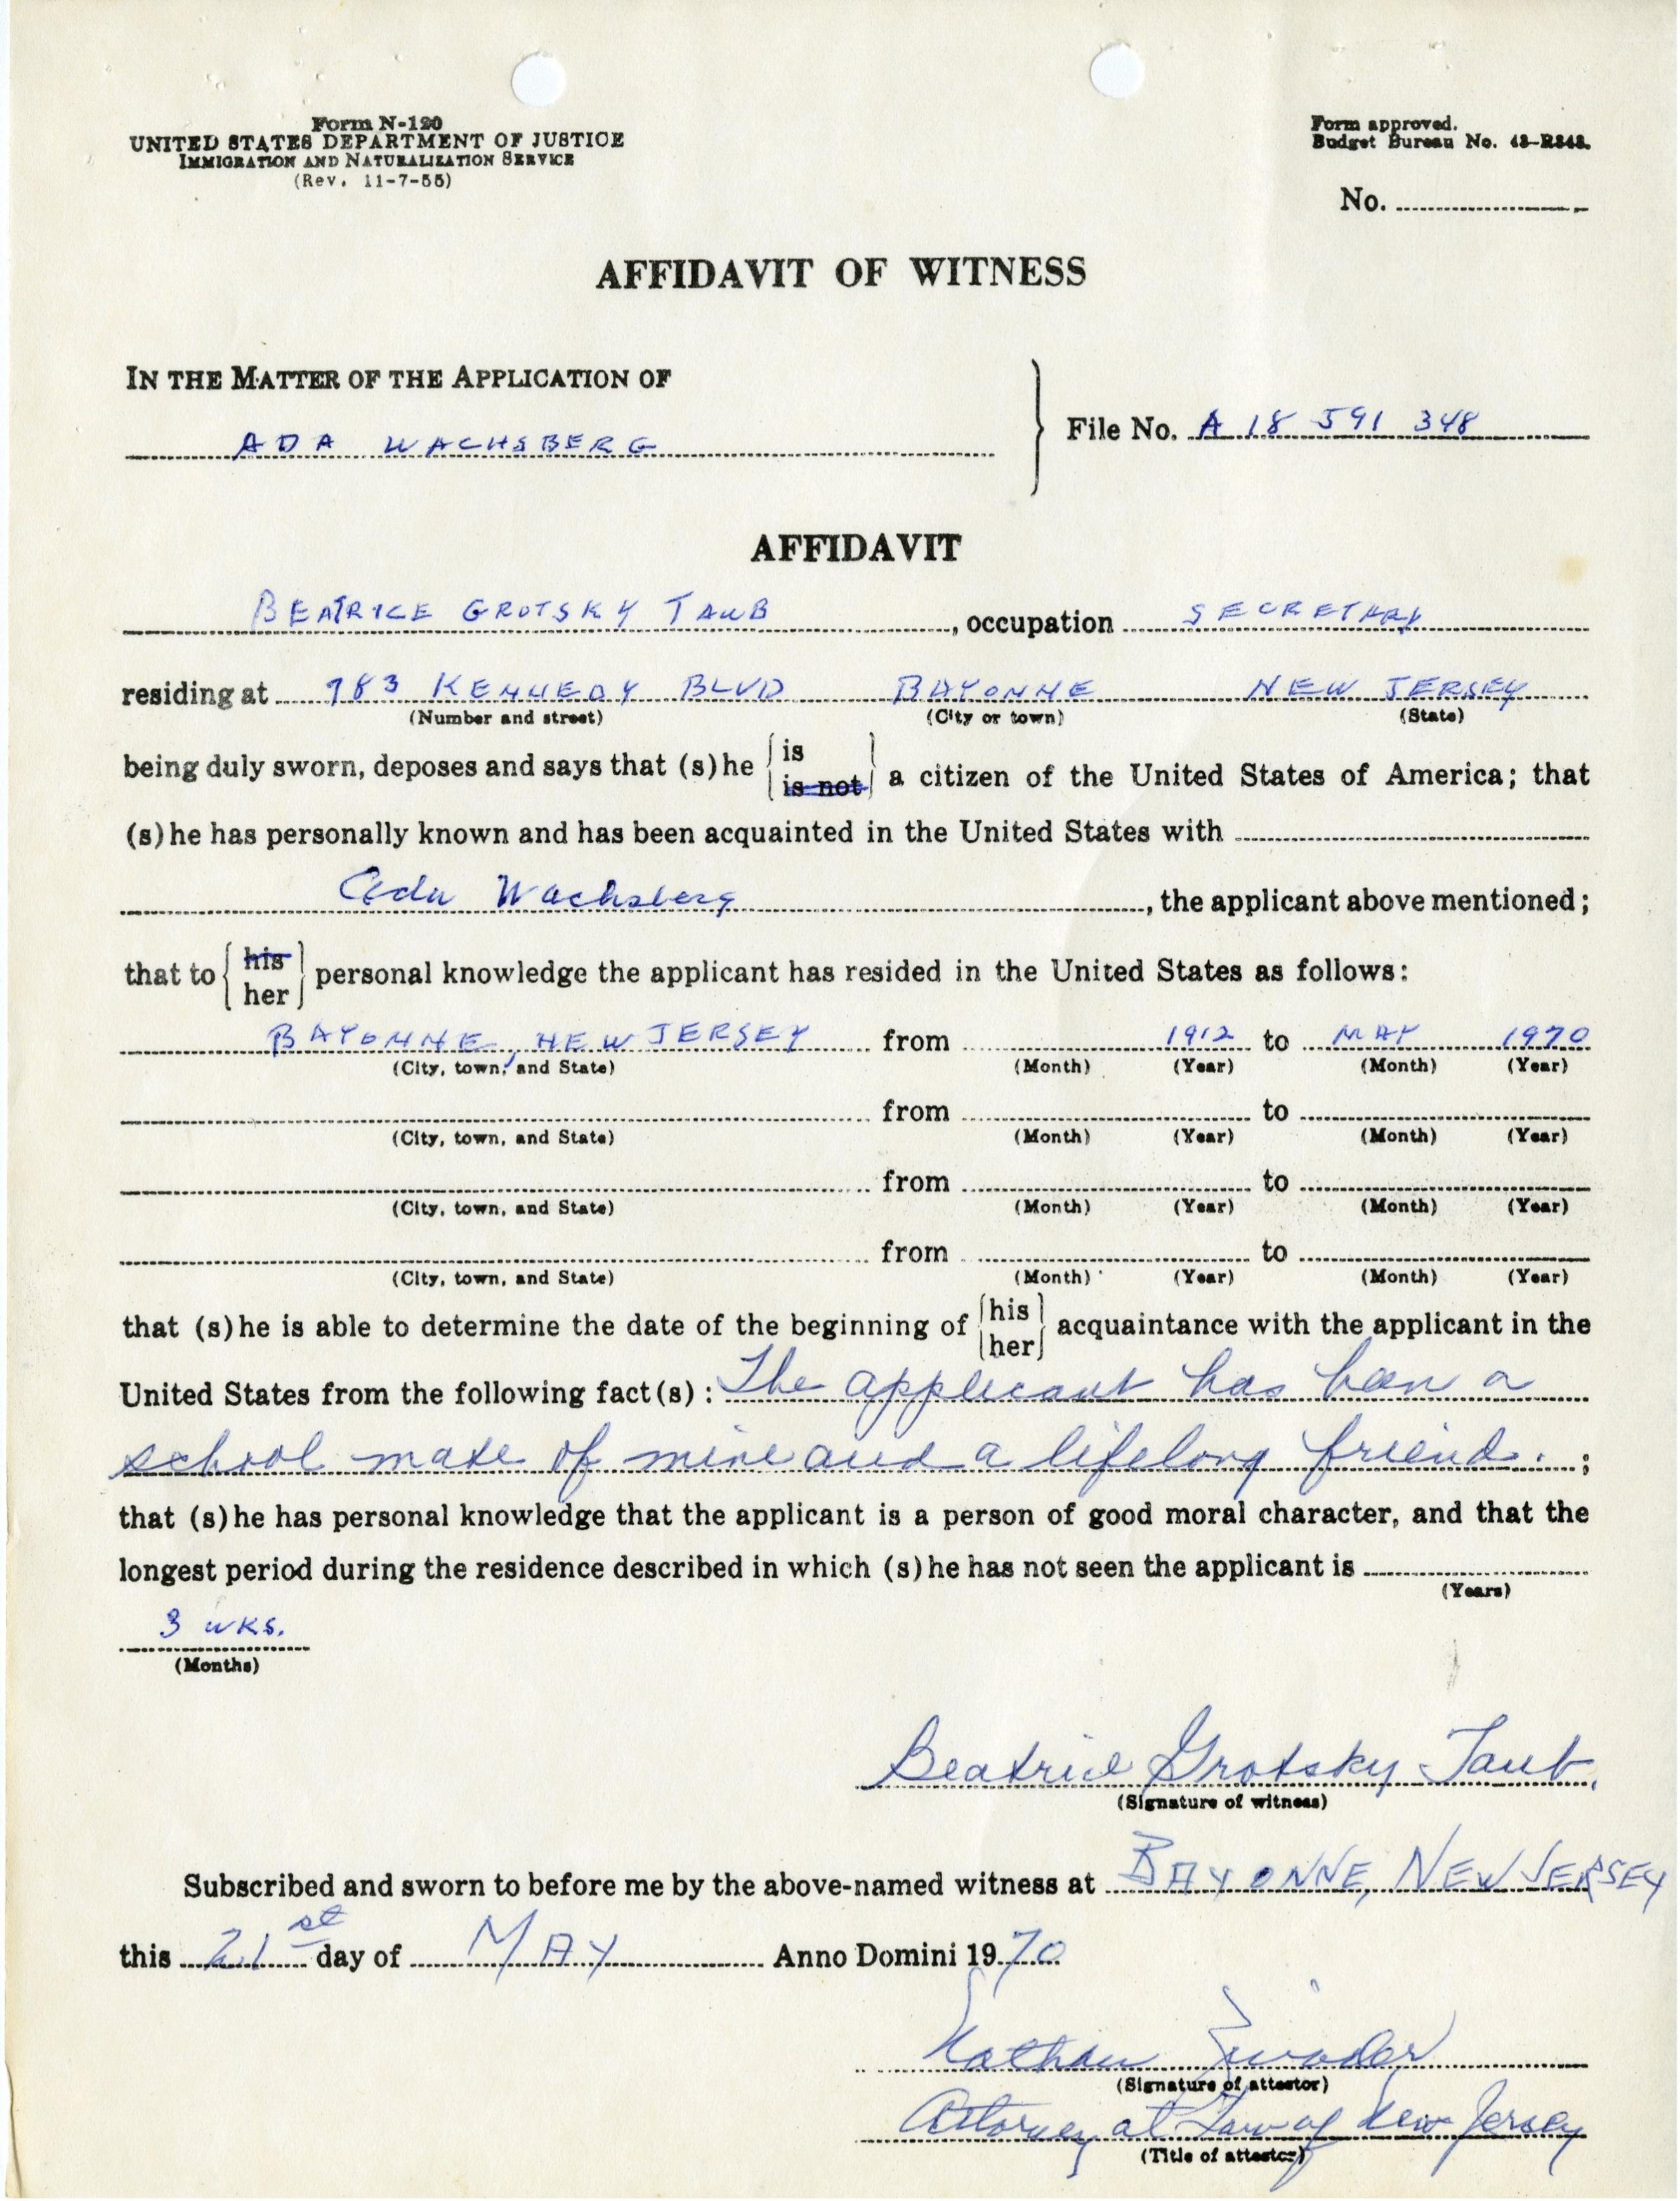 Form N-120
UNITED STATES DEPARTMENT OF JUSTICE
IMMIGRATION AND NATURALIZATION SERVICE
(Rev. 11-7-55)
Form approved.
Budget Bureau No. 43-R348.
No.
AFFIDAVIT OF WITNESS
IN THE MATTER OF THE APPLICATION OF
ADA WACHSBERG
File No. A 18 591 348
AFFIDAVIT
BEATRICE GROTSKY TAUB, occupation SECRETARY
residing at 783 KENNEDY BLVD BAYONNE NEW JERSEY
(Number and street) (City or town) (State)
being duly sworn, deposes and says that (s)he { is is not } a citizen of the United States of America; that
(s)he has personally known and has been acquainted in the United States with
Ada Wachsberg, the applicant above mentioned;
that to { his her } personal knowledge the applicant has resided in the United States as follows:
BAYONNE, NEW JERSEY from 1912 to MAY 1970
(City, town, and State) (Month) (Year) (Month) (Year)
from to
(City, town, and State) (Month) (Year) (Month) (Year)
from to
(City, town, and State) (Month) (Year) (Month) (Year)
from to
(City, town, and State) (Month) (Year) (Month) (Year)
that (s)he is able to determine the date of the beginning of { his her } acquaintance with the applicant in the
United States from the following fact(s): The applicant has been a
school mate of mine and a lifelong friend. ;
that (s)he has personal knowledge that the applicant is a person of good moral character, and that the
longest period during the residence described in which (s)he has not seen the applicant is
(Years)
3 wks.
(Months)
Beatrice Grotsky Taub.
(Signature of witness)
Subscribed and sworn to before me by the above-named witness at BAYONNE, NEW JERSEY
this 21st day of MAY Anno Domini 1970
Nathan
(Signature of attestor)
Attorney at Law of New Jersey
(Title of attestor)